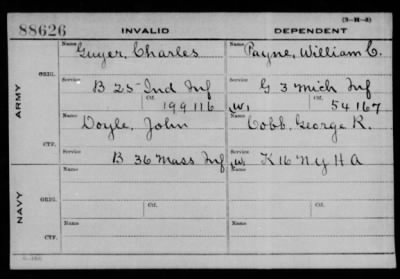 (3-H-3)
88626 INVALID DEPENDENT
ARMY
ORIG.
Name Guyer, Charles Name Payne, William C.
Service B 25 Ind Inf Service G 3 Mich Inf
Ctf. 199116 (W) Ctf. 54167
CTF.
Name Doyle, John Name Cobb, George R.
Service B 36 Mass Inf Service (W) K 16 N Y H A
NAVY
ORIG.
Name Name
Ctf. Ctf.
CTF.
Name Name